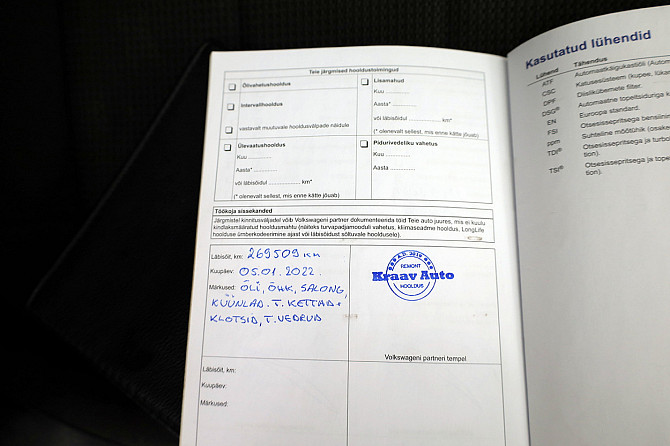 Teie järgmised hooldustoimingud
Õlivahetushooldus
Intervallhooldus
vastavalt muutuvale hooldusvälpade näidule
Ülevaatushooldus
Kuu ............
Aasta* ............
või läbisõidul ............ km*
(* olenevalt sellest, mis enne kätte jõuab)
Lisamahud
Kuu ............
Aasta* ............
või läbisõidul ............ km*
(* olenevalt sellest, mis enne kätte jõuab)
Pidurivedeliku vahetus
Kuu ............
Aasta ............
Töökoja sissekanded
Järgmistel kinnitusväljadel võib Volkswageni partner dokumenteerida töid Teie auto juures, mis ei kuulu
kindlaksmääratud hooldusmahtu (näiteks turvapadjamooduli vahetus, kliimaseadme hooldus, LongLife
hoolduse ümberkodeerimine ajast või läbisõidust sõltuvale hooldusele).
Läbisõit, km: 269509 KM
Kuupäev: 05.01.2022.
Märkused: ÕLI, ÕHK, SALONG,
KÜÜNLAD. T. KETTAD +
KLOTSID, T. VEDRUD
REMONT
Kraav Auto
HOOLDUS
Volkswageni partneri tempel
Läbisõit, km:
Kuupäev:
Märkused:
Kasutatud lühendid
Lühend Tähendus
ATF
CSC
DPF Diislikübemete filter.
DSG®
EN Euroopa standard.
FSI
ppm
TDI®
tion).
TSI®
tion).